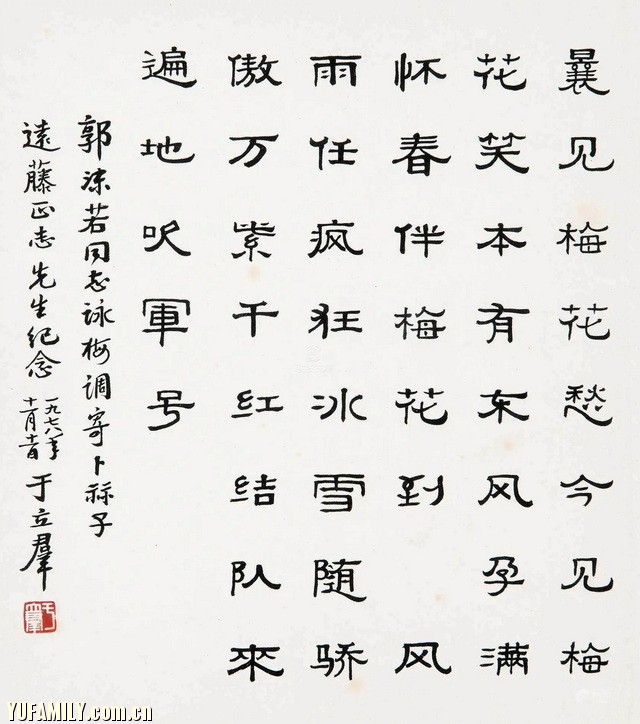 曩见梅花愁今见梅
花笑本有东风孕满
怀春伴梅花到 风
雨任疯狂冰雪随骄
傲万紫千红结队來
遍地吹軍号
郭沫若同志詠梅调寄卜祘子
遠藤正志先生纪念
一九七八年
于立羣
YUFAMILY.com.cn